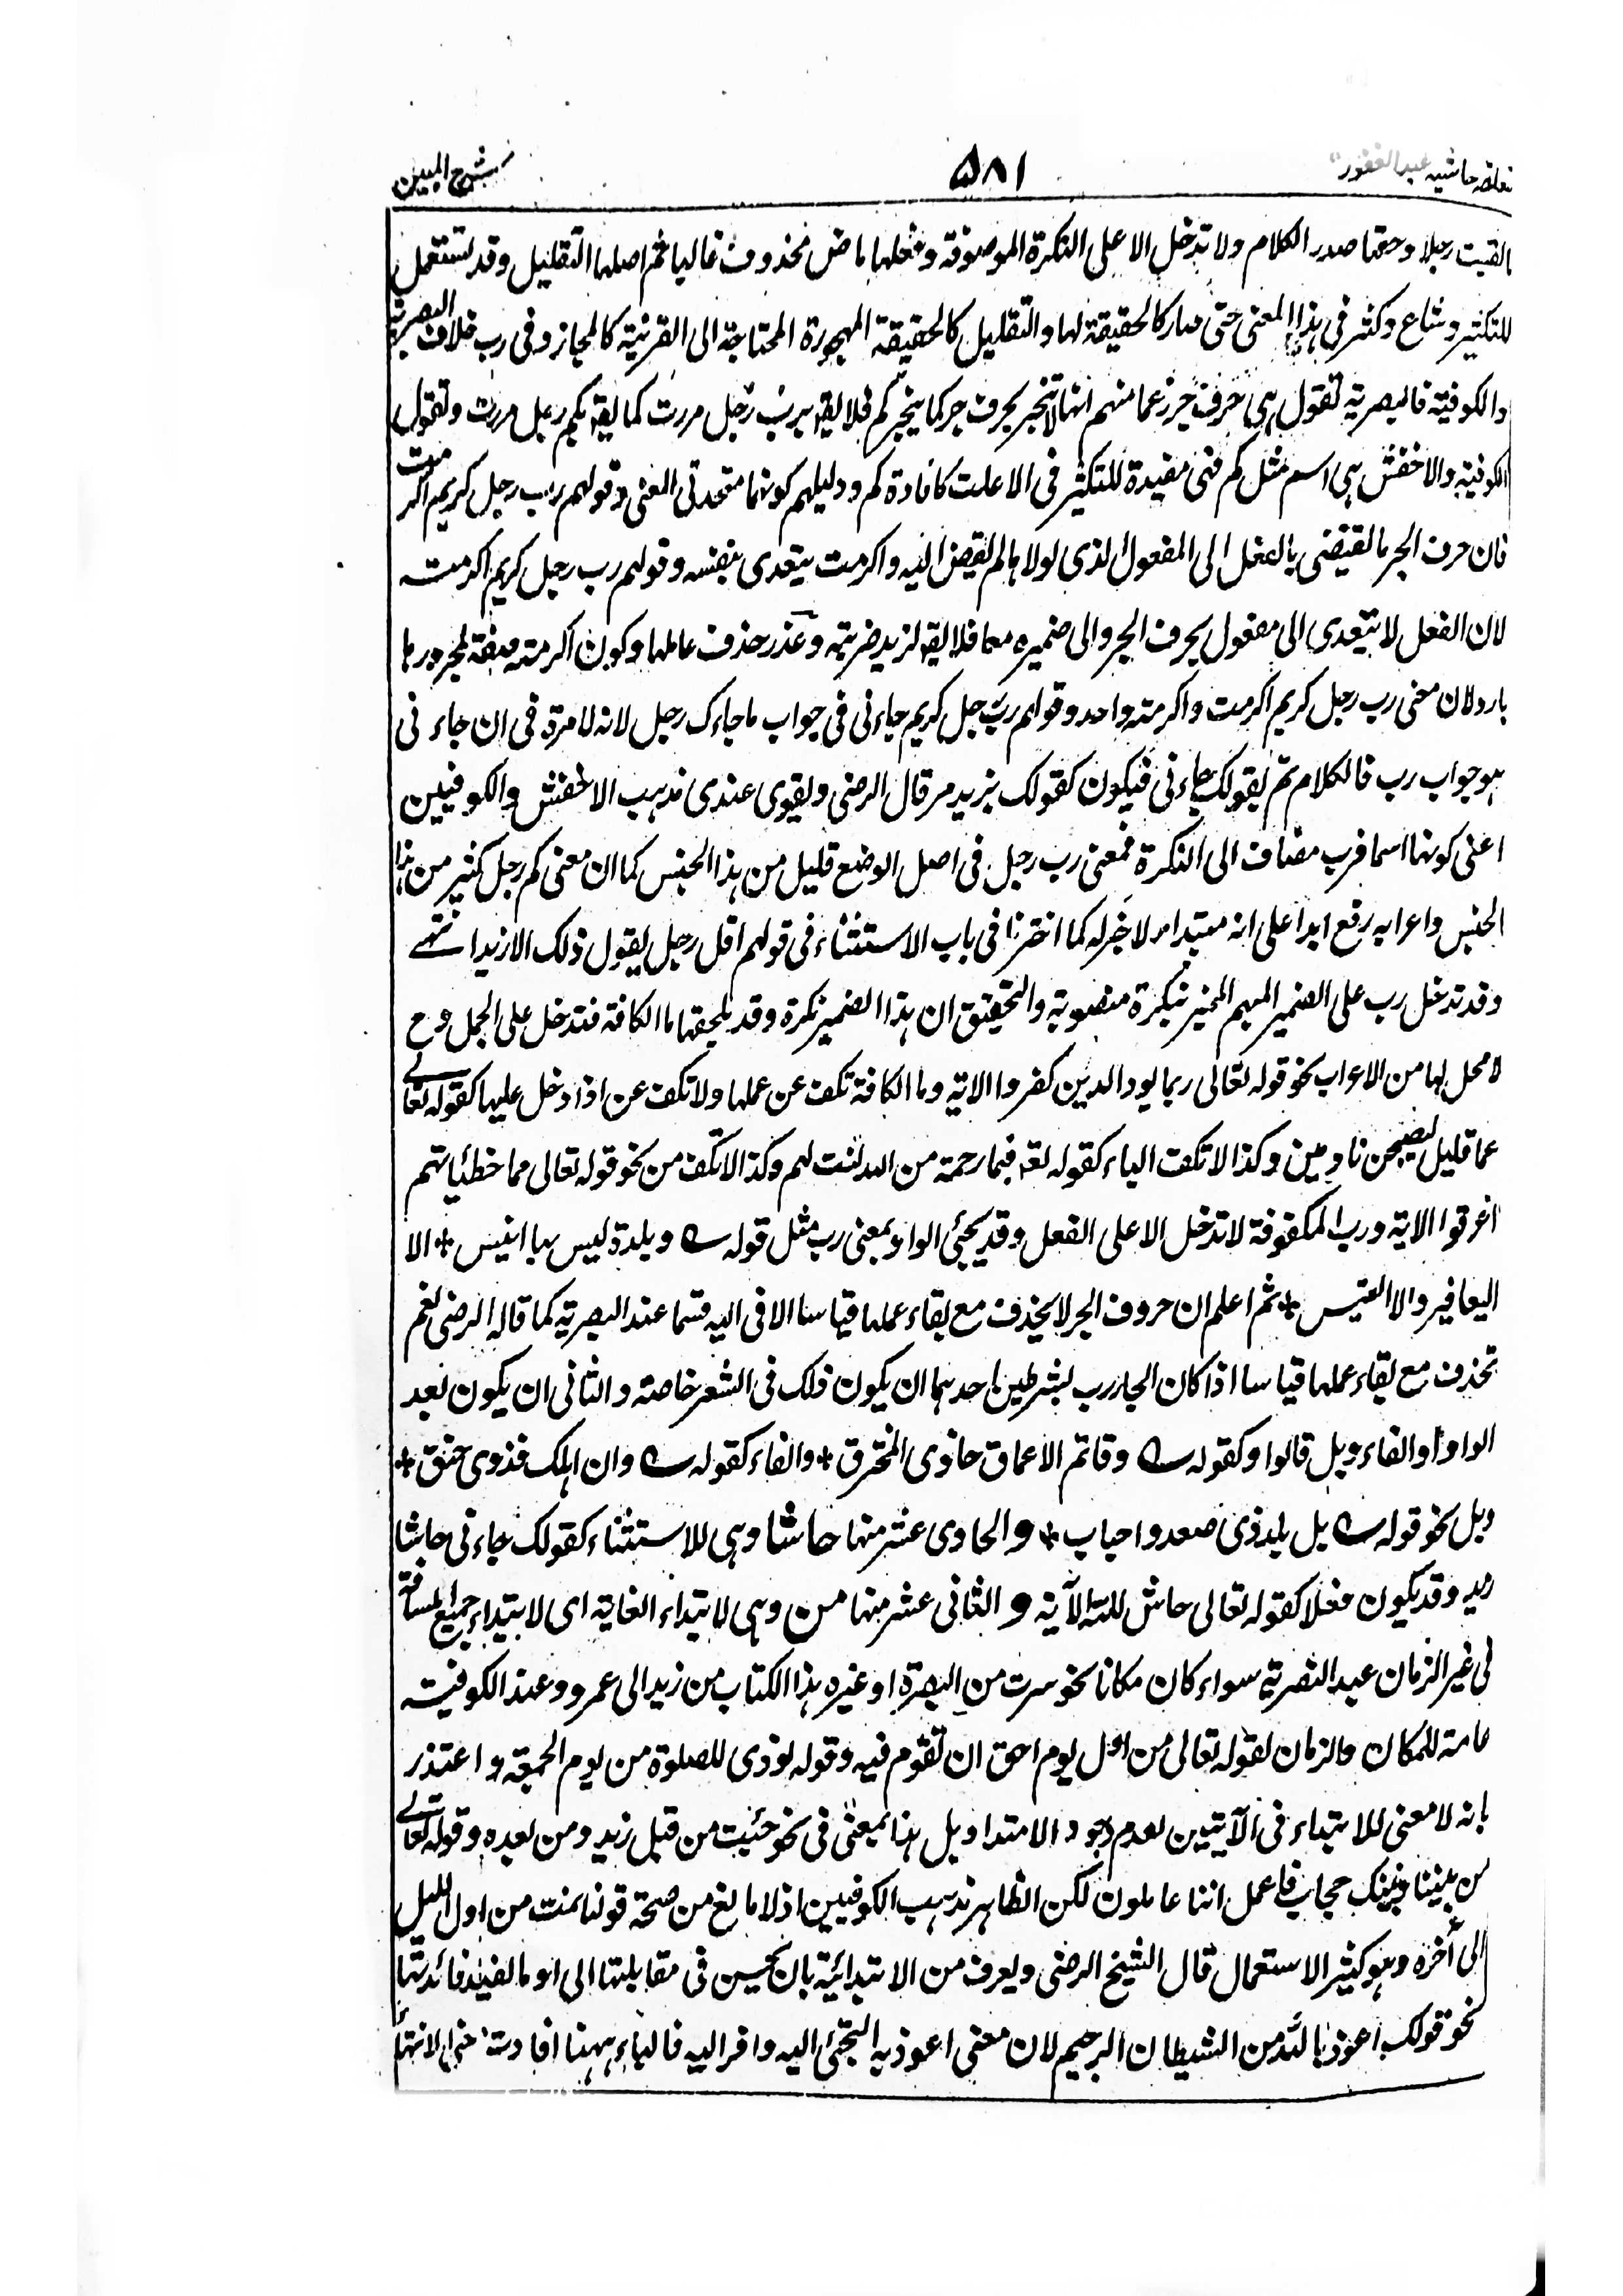 تعلقه حاشيه عبد الغفور
۵۸۱
شرح المبين
ما لقيت رجلا وحقها صدر الكلام ولا تدخل الا على النكرة الموصوفة وفعلها ماض محذوف غالبا ثم اصلها التقليل وقد تستعمل
للتكثير وشاع وكثر فى هذا المعنى حتى صار كالحقيقة لها والتقليل كالحقيقة المهجورة المحتاجة الى القرينة كالمجاز وفى رب خلاف البصرية
والكوفية فالبصرية تقول هى حرف جر زعما منهم انها لا تنجر بحرف جر كما ينجر كم فلا يقه برب رجل مررت كما يقه بكم رجل مررت وتقول
الكوفية والاخفش هى اسم مثل كم فهى مفيدة للتكثير فى الاغلب كافادة كم ودليلهم كونها متحدتى المعنى وقولهم رب رجل كريم اكرمت
فان حرف الجر ما تفيضى بالفعل الى المفعول الذى لولاها لم يفيض اليه واكرمت يتعدى بنفسه وقولهم رب رجل كريم اكرمته
لان الفعل لا يتعدى الى مفعول بحرف الجر والى ضميره معا فلا يقه لزيد ضربته وعذر حذف عاملها وكون اكرمته صفة لمجرورها
بارد لان معنى رب رجل كريم اكرمت واكرمته واحد وقولهم رب رجل كريم جاءنى فى جواب ما جاءك رجل لانه لا مرة فى ان جاءنى
هو جواب رب فالكلام تم بقولك جاءنى فيكون كقولك بزيد مر قال الرضى ويقوى عندى مذهب الاخفش والكوفيين
اعنى كونها اسما فرب مضاف الى النكرة فمعنى رب رجل فى اصل الوضع قليل من هذا الجنس كما ان معنى كم رجل كثير من هذا
الجنس واعرابه رفع ابدا على انه مبتدأ لا خبر له كما اخترنا فى باب الاستثناء فى قولهم اقل رجل يقول ذلك الا زيدا انتهى
وقد تدخل رب على الضمير المبهم المميز بنكرة منصوبة والتحقيق ان هذا الضمير نكرة وقد يلحقها ما الكافة فتدخل على الجمل وح
لا محل لها من الاعراب نحو قوله تعالى ربما يود الذين كفروا الاية وما الكافة تكف عن عملها ولا تكف عن اذا دخل عليها كقوله تعالى
عما قليل ليصبحن نادمين وكذا لا تكف الباء كقوله تعه فبما رحمة من الله لنت لهم وكذا لا تكف من نحو قوله تعالى مما خطيئاتهم
اغرقوا الاية ورب المكفوفة لا تدخل الا على الفعل وقد يجئ الواو بمعنى رب مثل قوله ؎ وبلدة ليس بها انيس * الا
اليعافير والا العيس * ثم اعلم ان حروف الجر لا يحذف مع بقاء عملها قياسا الا فى اليه قسما عند البصرية كما قاله الرضى نعم
تحذف مع بقاء عملها قياسا اذا كان الجار رب بشرطين احدهما ان يكون ذلك فى الشعر خاصة والثانى ان يكون بعد
الواو او الفاء وبل قالوا وكقوله ؎ وقاتم الاعماق خاوى المخترق * والفاء كقوله ؎ وان اهلك فذوى حنق *
وبل نحو قوله ؎ بل بلد ذى صعد واحباب * والحادى عشر منها حاشا وهى للاستثناء كقولك جاءنى حاشا
زيد وقد يكون فعلا كقوله تعالى حاش لله الآية والثانى عشر منها من وهى لابتداء الغاية اى لابتداء جميع المسافة
فى غير الزمان عند البصرية سواء كان مكانا نحو سرت من البصرة او غيره هذا الكتاب من زيد الى عمرو وعند الكوفية
عامة للمكان والزمان لقوله تعالى من اول يوم احق ان تقوم فيه وقوله نودى للصلوة من يوم الجمعة واعتذر
بانه لا معنى للابتداء فى الآيتين لعدم وجود الامتداد بل هنا بمعنى فى نحو جئت من قبل زيد ومن بعده وقوله تعالى
من بيننا وبينك حجاب فاعمل اننا عاملون لكن الظاهر مذهب الكوفيين اذ لا مانع من صحة قولنا نمت من اول الليل
الى آخره وهو كثير الاستعمال قال الشيخ الرضى ويعرف من الابتدائية بان يحسن فى مقابلتها الى او ما يفيد فائدتها
نحو قولك اعوذ بالله من الشيطان الرجيم لان معنى اعوذ به التجئ اليه وافر اليه فالباء ههنا افادت معنى الانتهاء